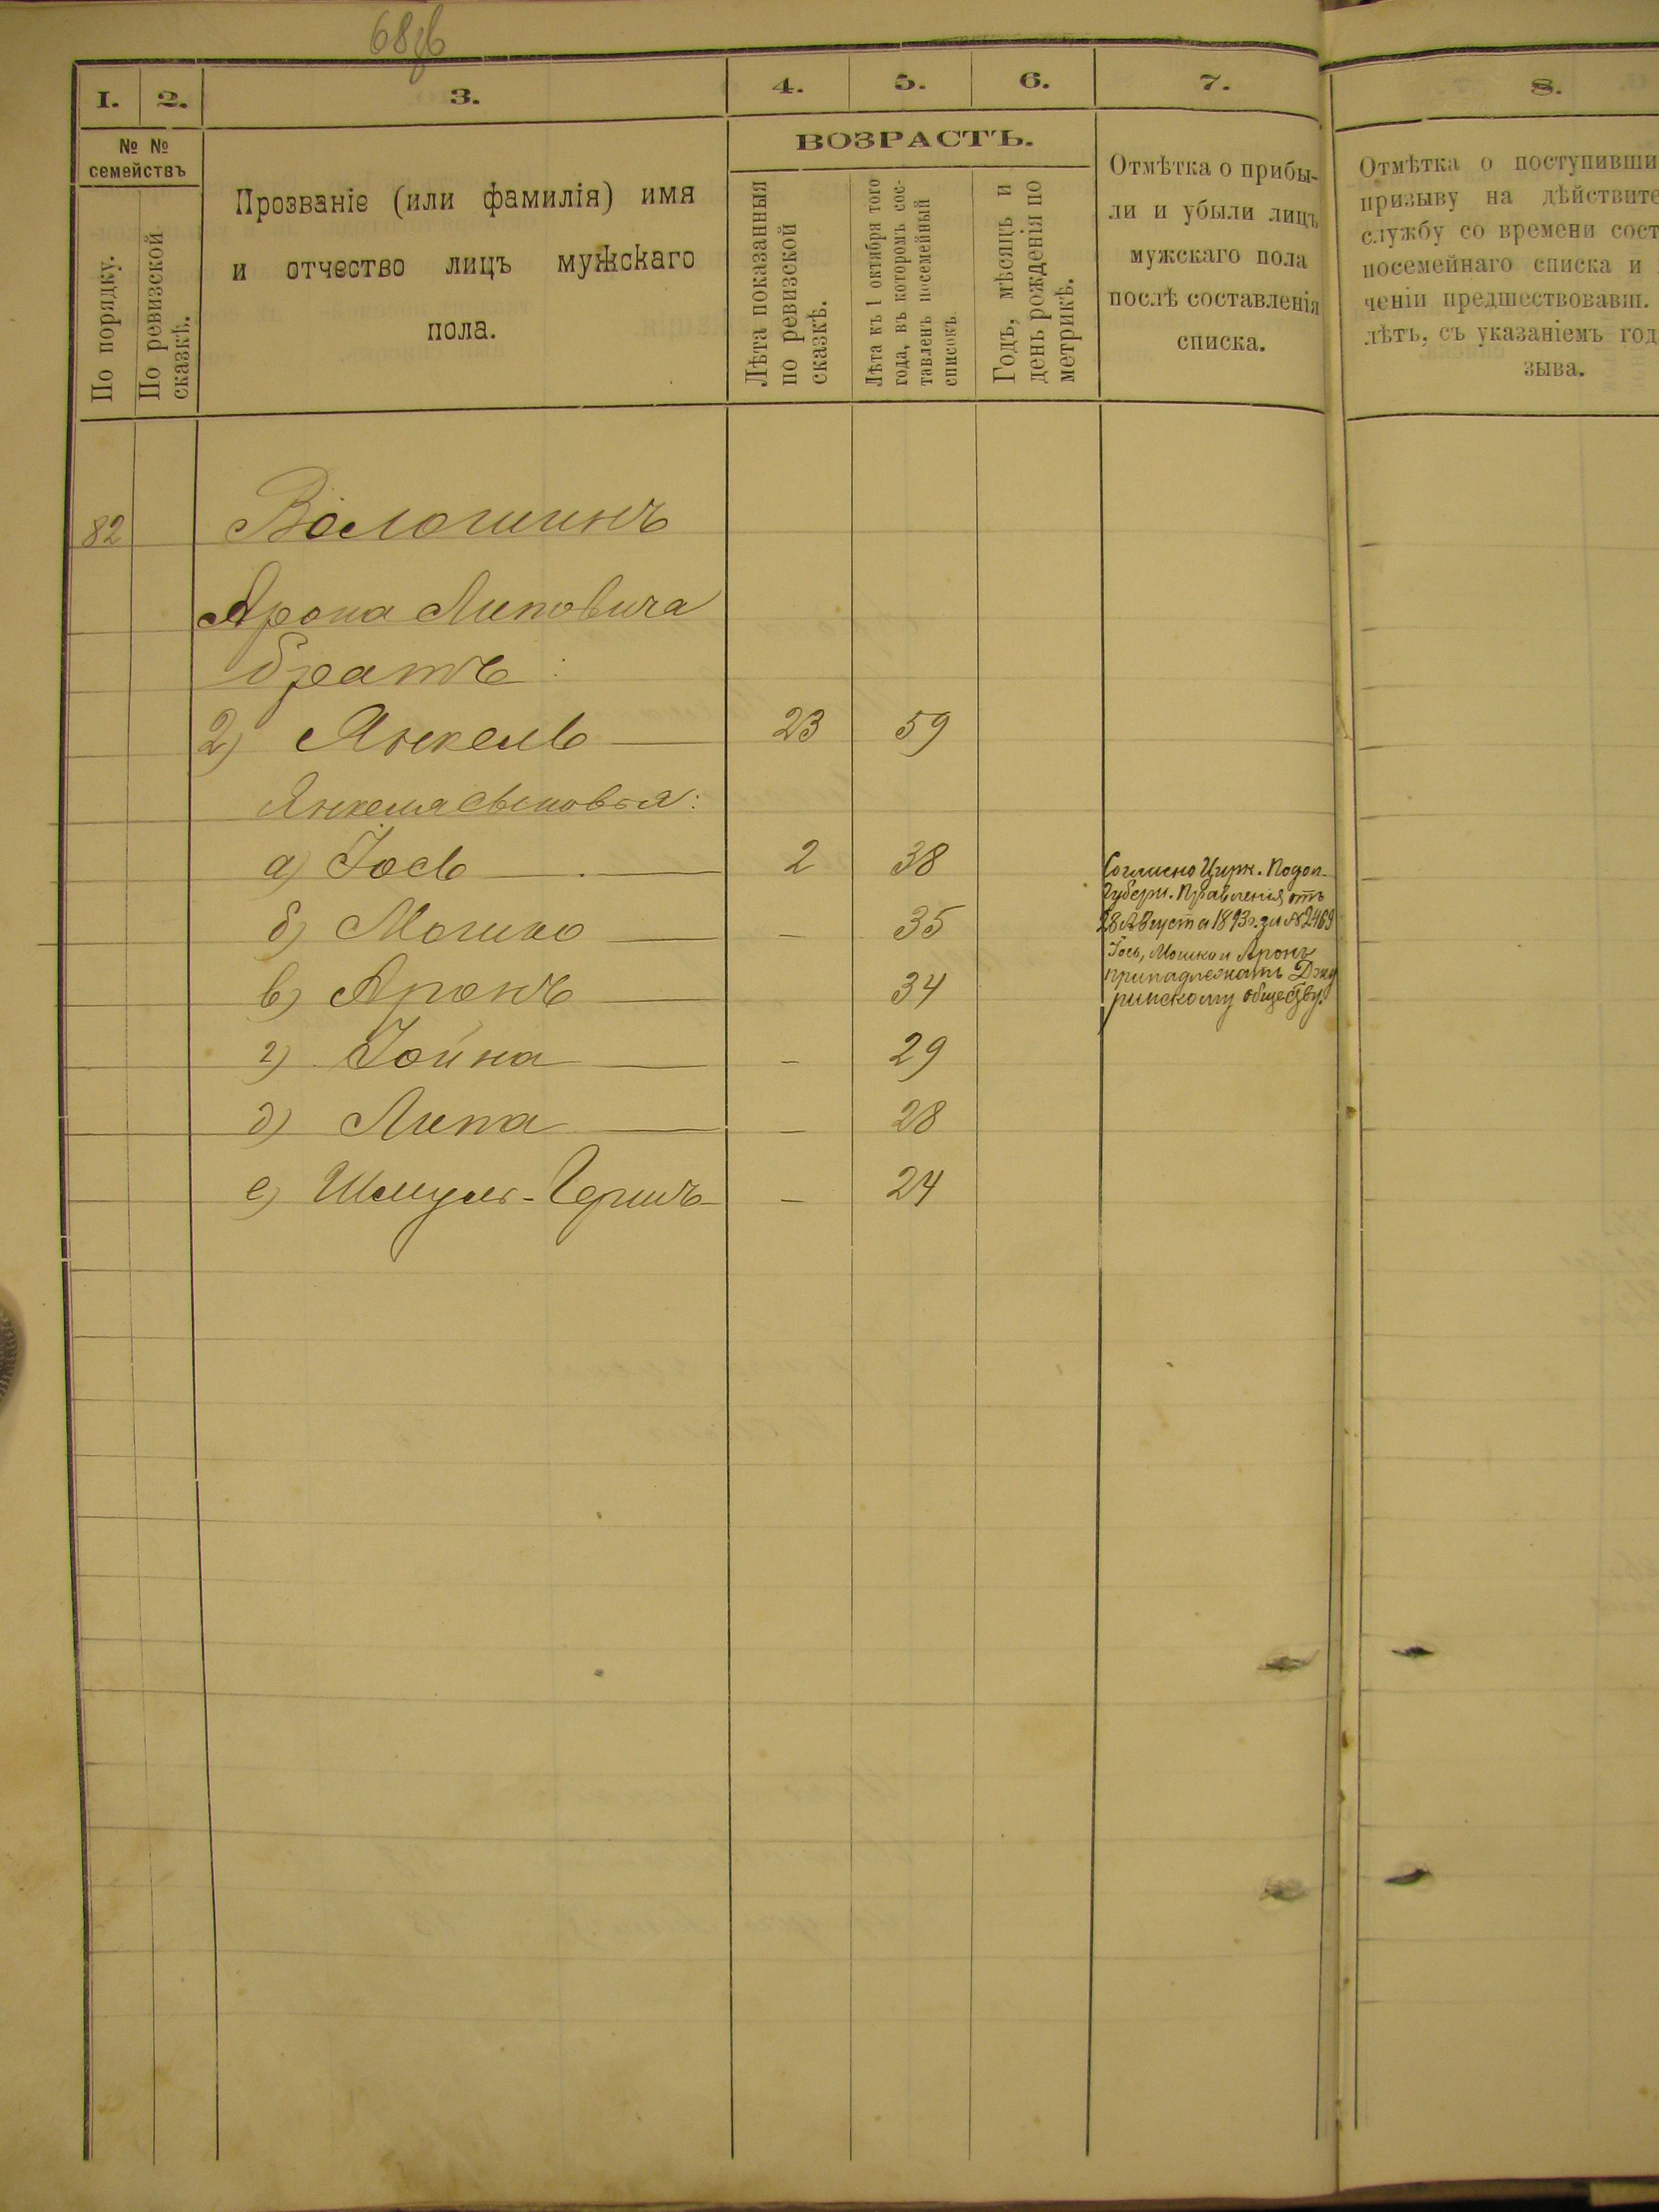 68об
I. 2. 3. 4. 5. 6. 7. 8.
№ №
семействъ
По порядку.
По ревизской
сказкѣ.
Прозваніе (или фамилія) имя
и отчество лицъ мужскаго
пола.
ВОЗРАСТЪ.
Лѣта показанныя
по ревизской
сказкѣ.
Лѣта къ 1 октября того
года, въ которомъ сос-
тавленъ посемейный
списокъ.
Годъ, мѣсяцъ и
день рожденія по
метрикѣ.
Отмѣтка о прибы-
ли и убыли лицъ
мужскаго пола
послѣ составленія
списка.
Отмѣтка о поступивши
призыву на дѣйствите
службу со времени сост
посемейнаго списка и
ченіи предшествовавш.
лѣтъ, съ указаніемъ год
зыва.
82 Волошинъ
Арона Липовича
братъ:
2) Янкель — 23 59
Янкеля сыновья:
а) Іось — 2 38
б) Мошко — – 35
в) Аронъ — – 34
г) Іойна — – 29
д) Липа — – 28
е) Шмуль-Гершъ – 24
Согласно Цирк. Подол.
Губерн. Правленія отъ
28 Августа 1893 г. за № 2469
Іось, Мошко и Аронъ
принадлежатъ Джу
ринскому обществу.